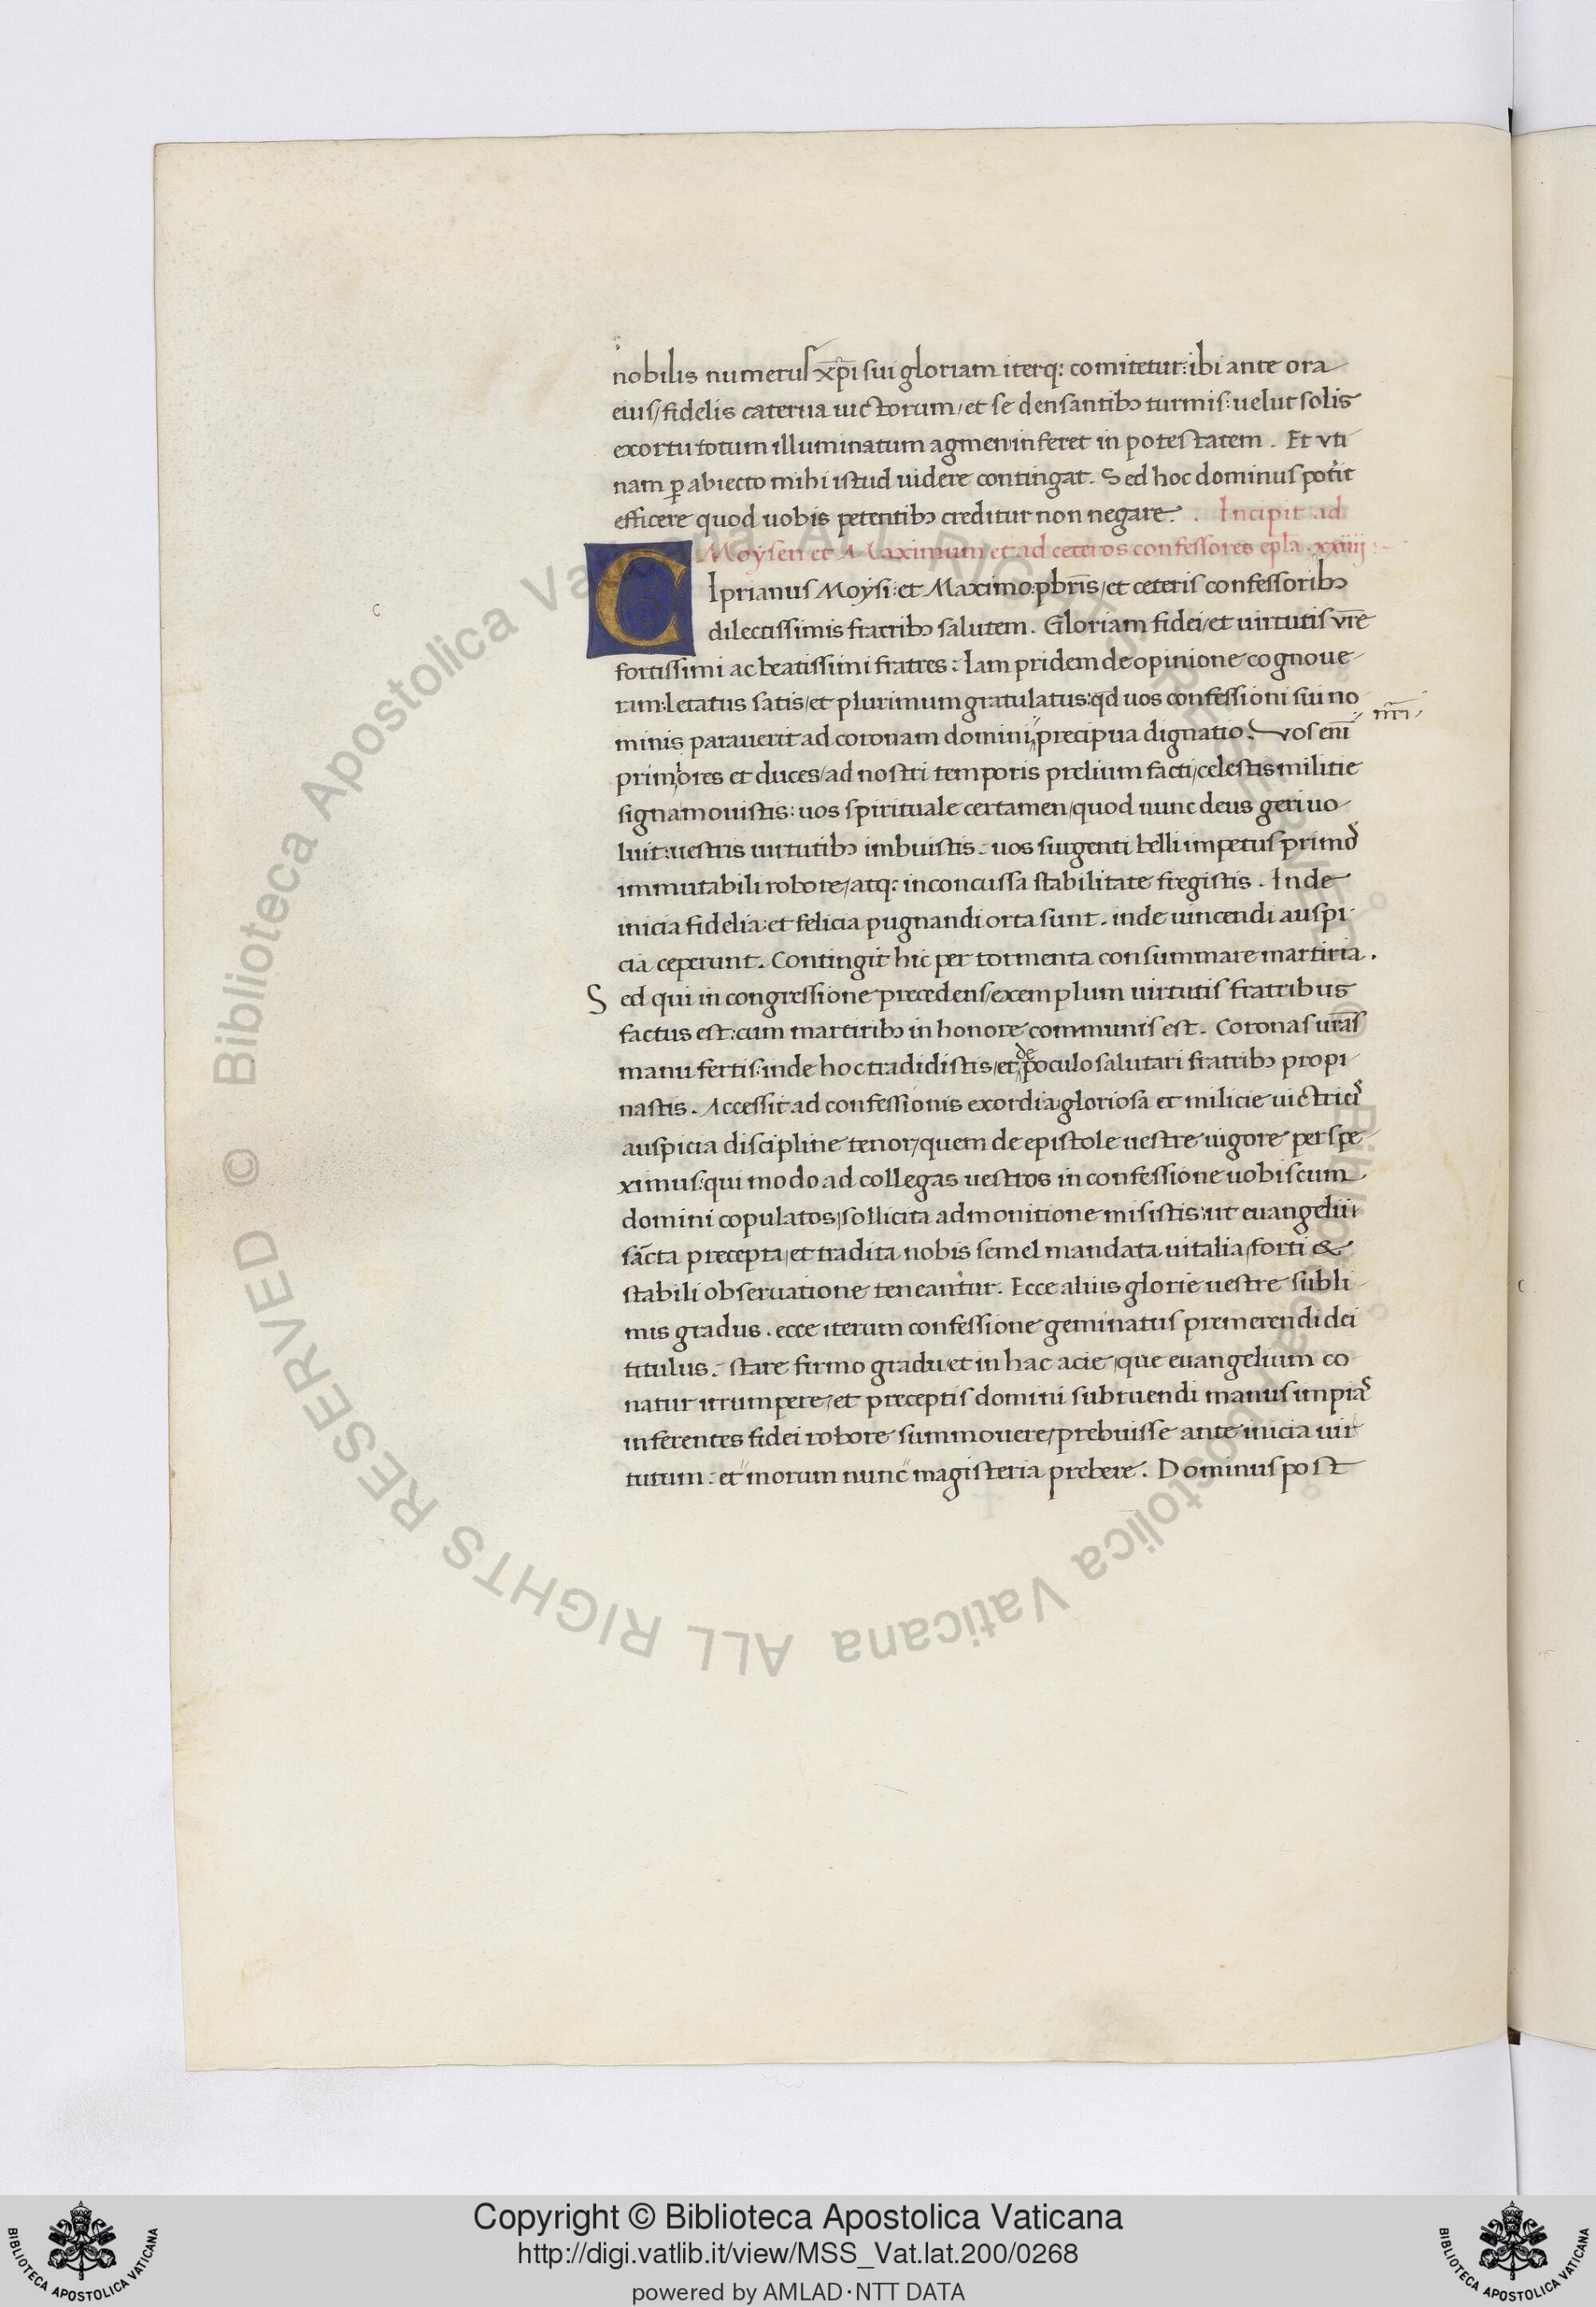 nobilis numerus xp̅i sui gloriam iterq: comitetur: ibi ante ora
eius/ fidelis caterua uictorum/ et se densantibꝫ turmis: uelut solis
exortu totum illuminatum agmen inferet in potestatem . Et vti
nam ꝑ abiecto mihi istud uidere contingat. Sed hoc dominus potit
efficere quod uobis petentibꝫ creditur non negare . . Incipit ad
Moysen et Maximum et ad ceteros confessores epl̅a .xxiiij:
CIprianus Moysi: et Maximo: pbr̅is/ et ceteris confessoribꝫ
dilectissimis fratribꝫ salutem . Gloriam fidei/ et uirtutis vr̅e
fortissimi ac beatissimi fratres: Iam pridem de opinione cognoue
ram: letatus satis/ et plurimum gratulatus: qd̅ uos confessioni sui no
minis parauerit ad coronam domini precipua dignatio. vos eni̅
nr̅i
primores et duces/ ad nostri temporis prelium facti/ celestis militie
signa mouistis: uos spirituale certamen/ quod nunc deus geri uo
luit: uestris uirtutibꝫ imbuistis. uos surgenti belli impetus primos
immutabili robore/ atq: inconcussa stabilitate fregistis . Inde
inicia fidelia: et felicia pugnandi orta sunt. inde uincendi auspi
cia ceperunt. Contingit hic per tormenta consummare martiria .
Sed qui in congressione precedens/ exemplum uirtutis fratribus
factus est: cum martiribꝫ in honore communis est . Coronas ur̅as
manu fertis: inde hoc tradidistis/ et de poculo salutari fratribꝫ propi
nastis . Accessit ad confessionis exordia gloriosa et milicie uictricis
auspicia discipline tenor/ quem de epistole uestre uigore perspe
ximus: qui modo ad collegas uestros in confessione uobiscum
domini copulatos/ sollicita admonitione misistis: ut euangelii
sa̅cta precepta/ et tradita nobis semel mandata uitalia/ forti &
stabili obseruatione teneantur. Ecce alius glorie uestre subli
mis gradus . ecce iterum confessione geminatus premerendi dei
titulus. stare firmo gradu et in hac acie/ que euangelium co
natur irrumpere/ et preceptis domini subruendi manus impias
inferentes fidei robore summouere/ prebuisse ante inicia uir
tutum . et morum nunc magisteria prebere . Dominus post
© Biblioteca Apostolica Vaticana ALL RIGHTS RESERVED © Biblioteca Apostolica Vaticana ALL RIGHTS RESERVED
Copyright © Biblioteca Apostolica Vaticana
http://digi.vatlib.it/view/MSS_Vat.lat.200/0268
powered by AMLAD·NTT DATA
BIBLIOTECA APOSTOLICA VATICANA
BIBLIOTECA APOSTOLICA VATICANA